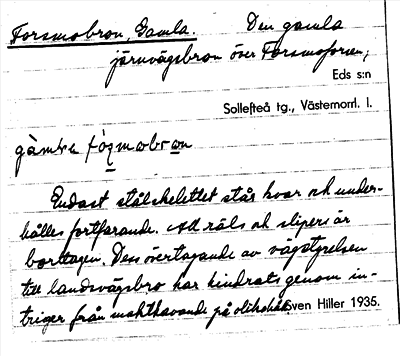 Forsmobron, Gamla. Den gamla
järnvägsbron över Forsmoforsen,
Eds s:n
Sollefteå tg., Västernorrl. l.
Endast stålskelettet står kvar och under-
hålles fortfarande. All räls och slipers är
borttagen. Dess övertagande av vägstyrelsen
till landsvägsbro har hindrats genom in-
triger från makthavande på olika håll. Sven Hiller 1935.